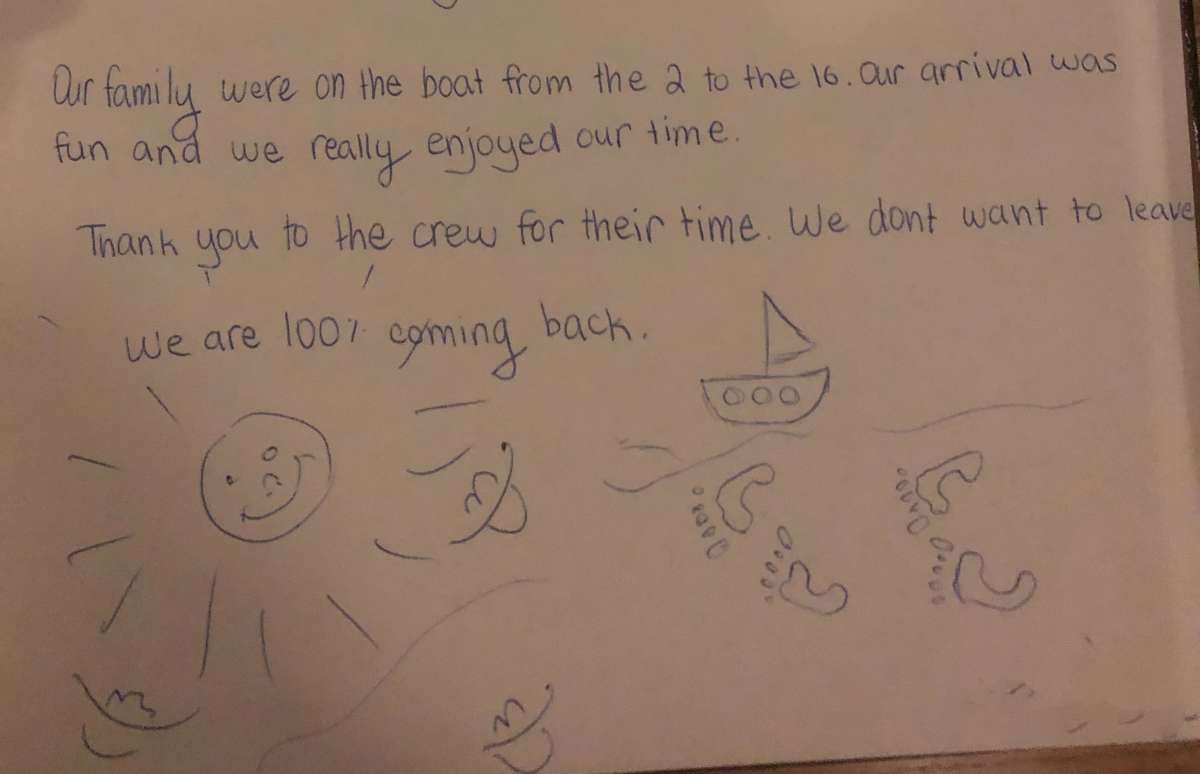 Our family were on the boat from the 2 to the 16. Our arrival was
fun and we really enjoyed our time.
Thank you to the crew for their time. We dont want to leave
We are 100% coming back.